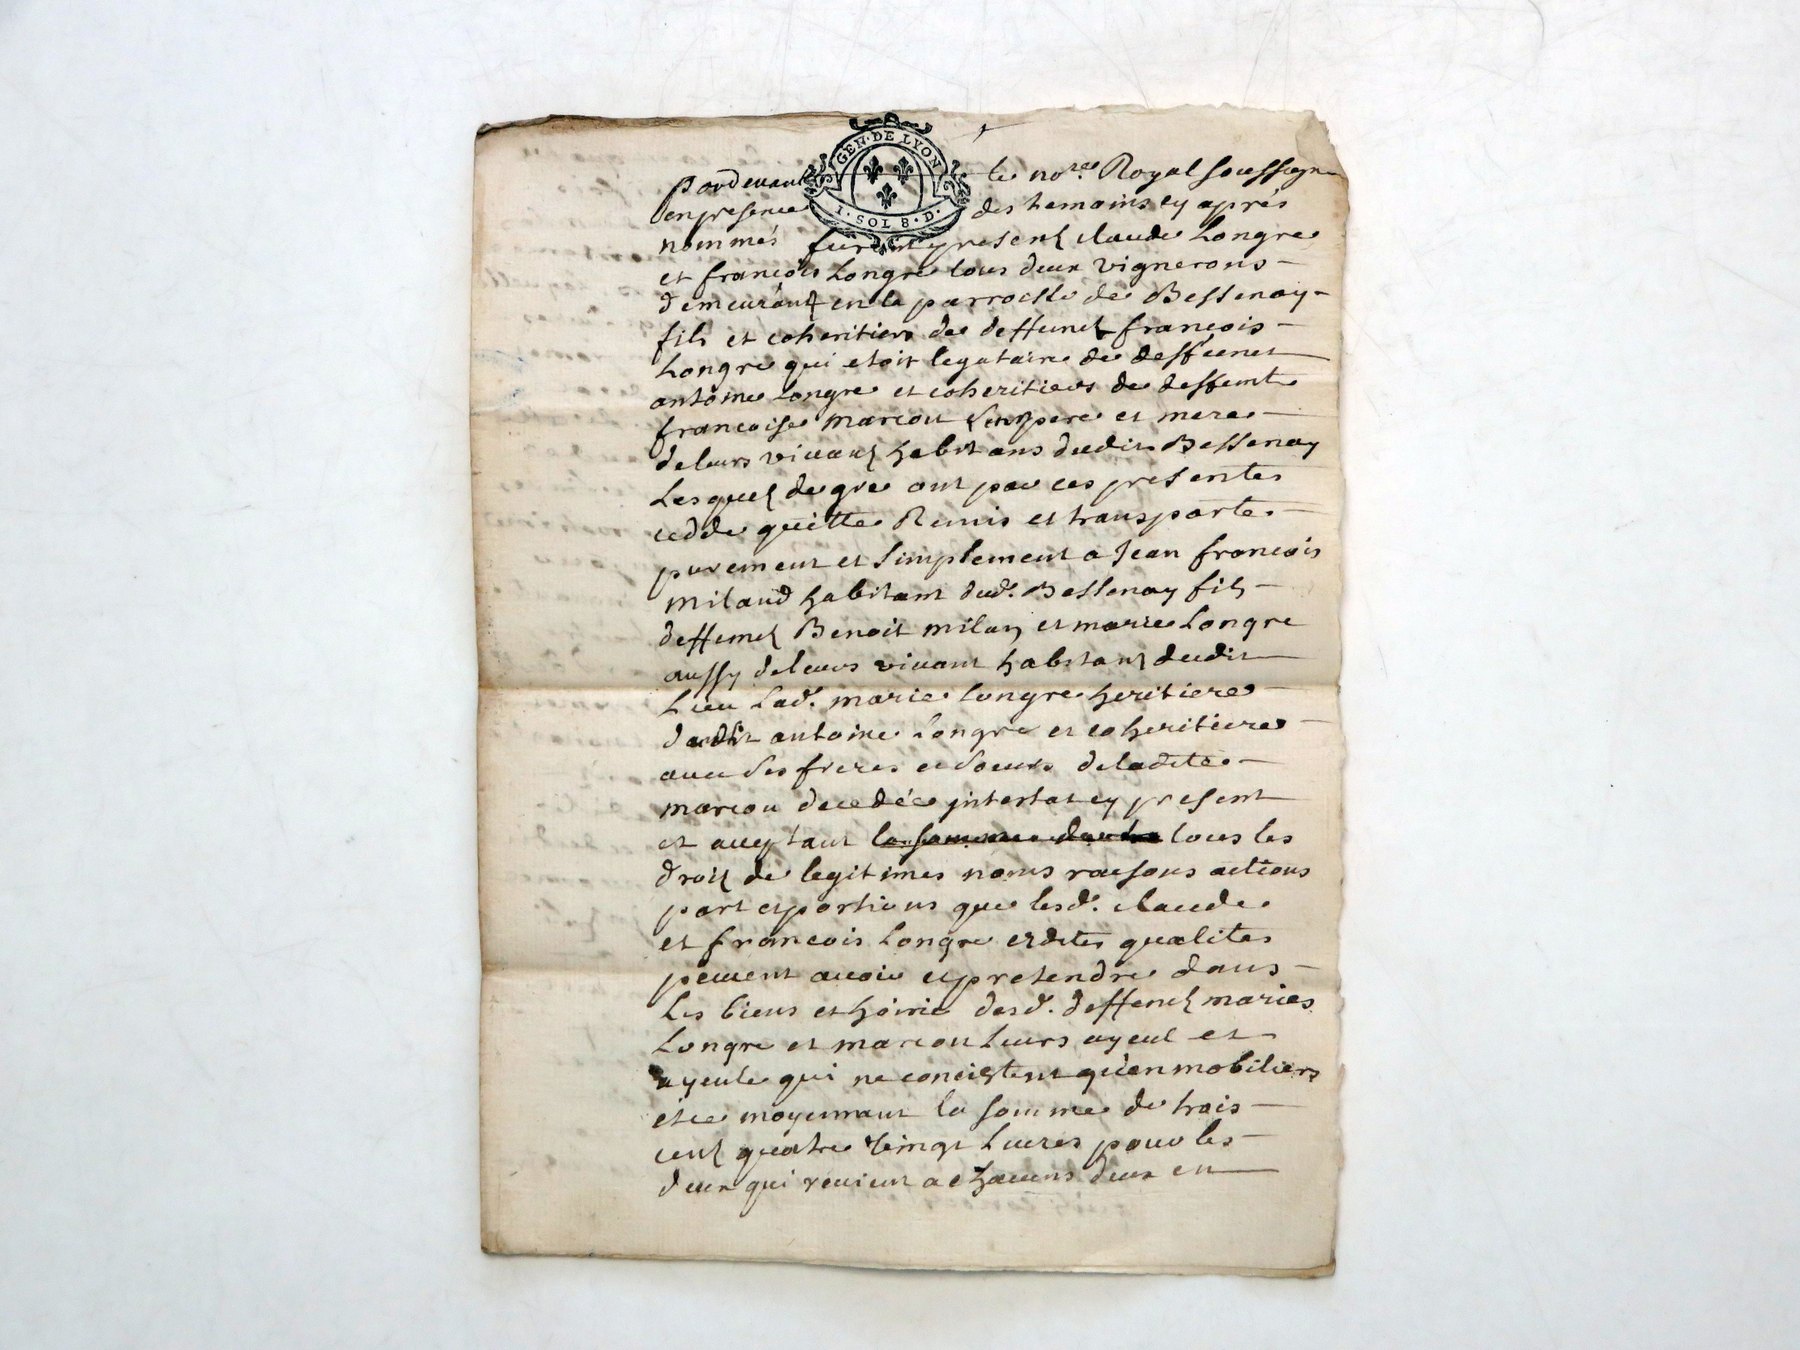 GEN. DE LYON
1. SOL 8. D.
pardevant le no.re Royal soussigne
en presence des temoins cy aprés
nommés furent presentz claude Longre
et francois Longre tous deux vignerons
demeurantz en la parroisse de Bessenay
fils et coheritiers de deffunct francois
Longre qui etoit legataire de deffunct
antoine Longre et coheritiers de deffunte
francoise marcou pere et mere
de leurs vivantz habitans dudit Bessenay
Lesquelz de gre ont par ces presentes
cedde quitte Remis et transporte
purement et simplement a Jean francois
miland habitant dud. Bessenay filz
deffunctz Benoit milan et marie Longre
aussy de leurs vivant habitantz dudit
Lieu Lad. marie Longre heritiere
dudit antoine Longre et coheritiere
avec ses freres et soeurs de ladite
marcou decedée intestat cy present
et acceptant la somme de tous les
droitz de legitimes noms raisons actions
part et portions que lesd. claude
et francois Longre esdites qualites
peuvent avoir et pretendre dans
Les biens et hoirie desd. deffunctz maries
Longre et marcou Leurs ayeul et
ayeule qui ne concistent qu'en mobiliers
et ce moyennant la somme de trois
centz quatre vingt Livres pour les
deux qui revient a chacuns deux en